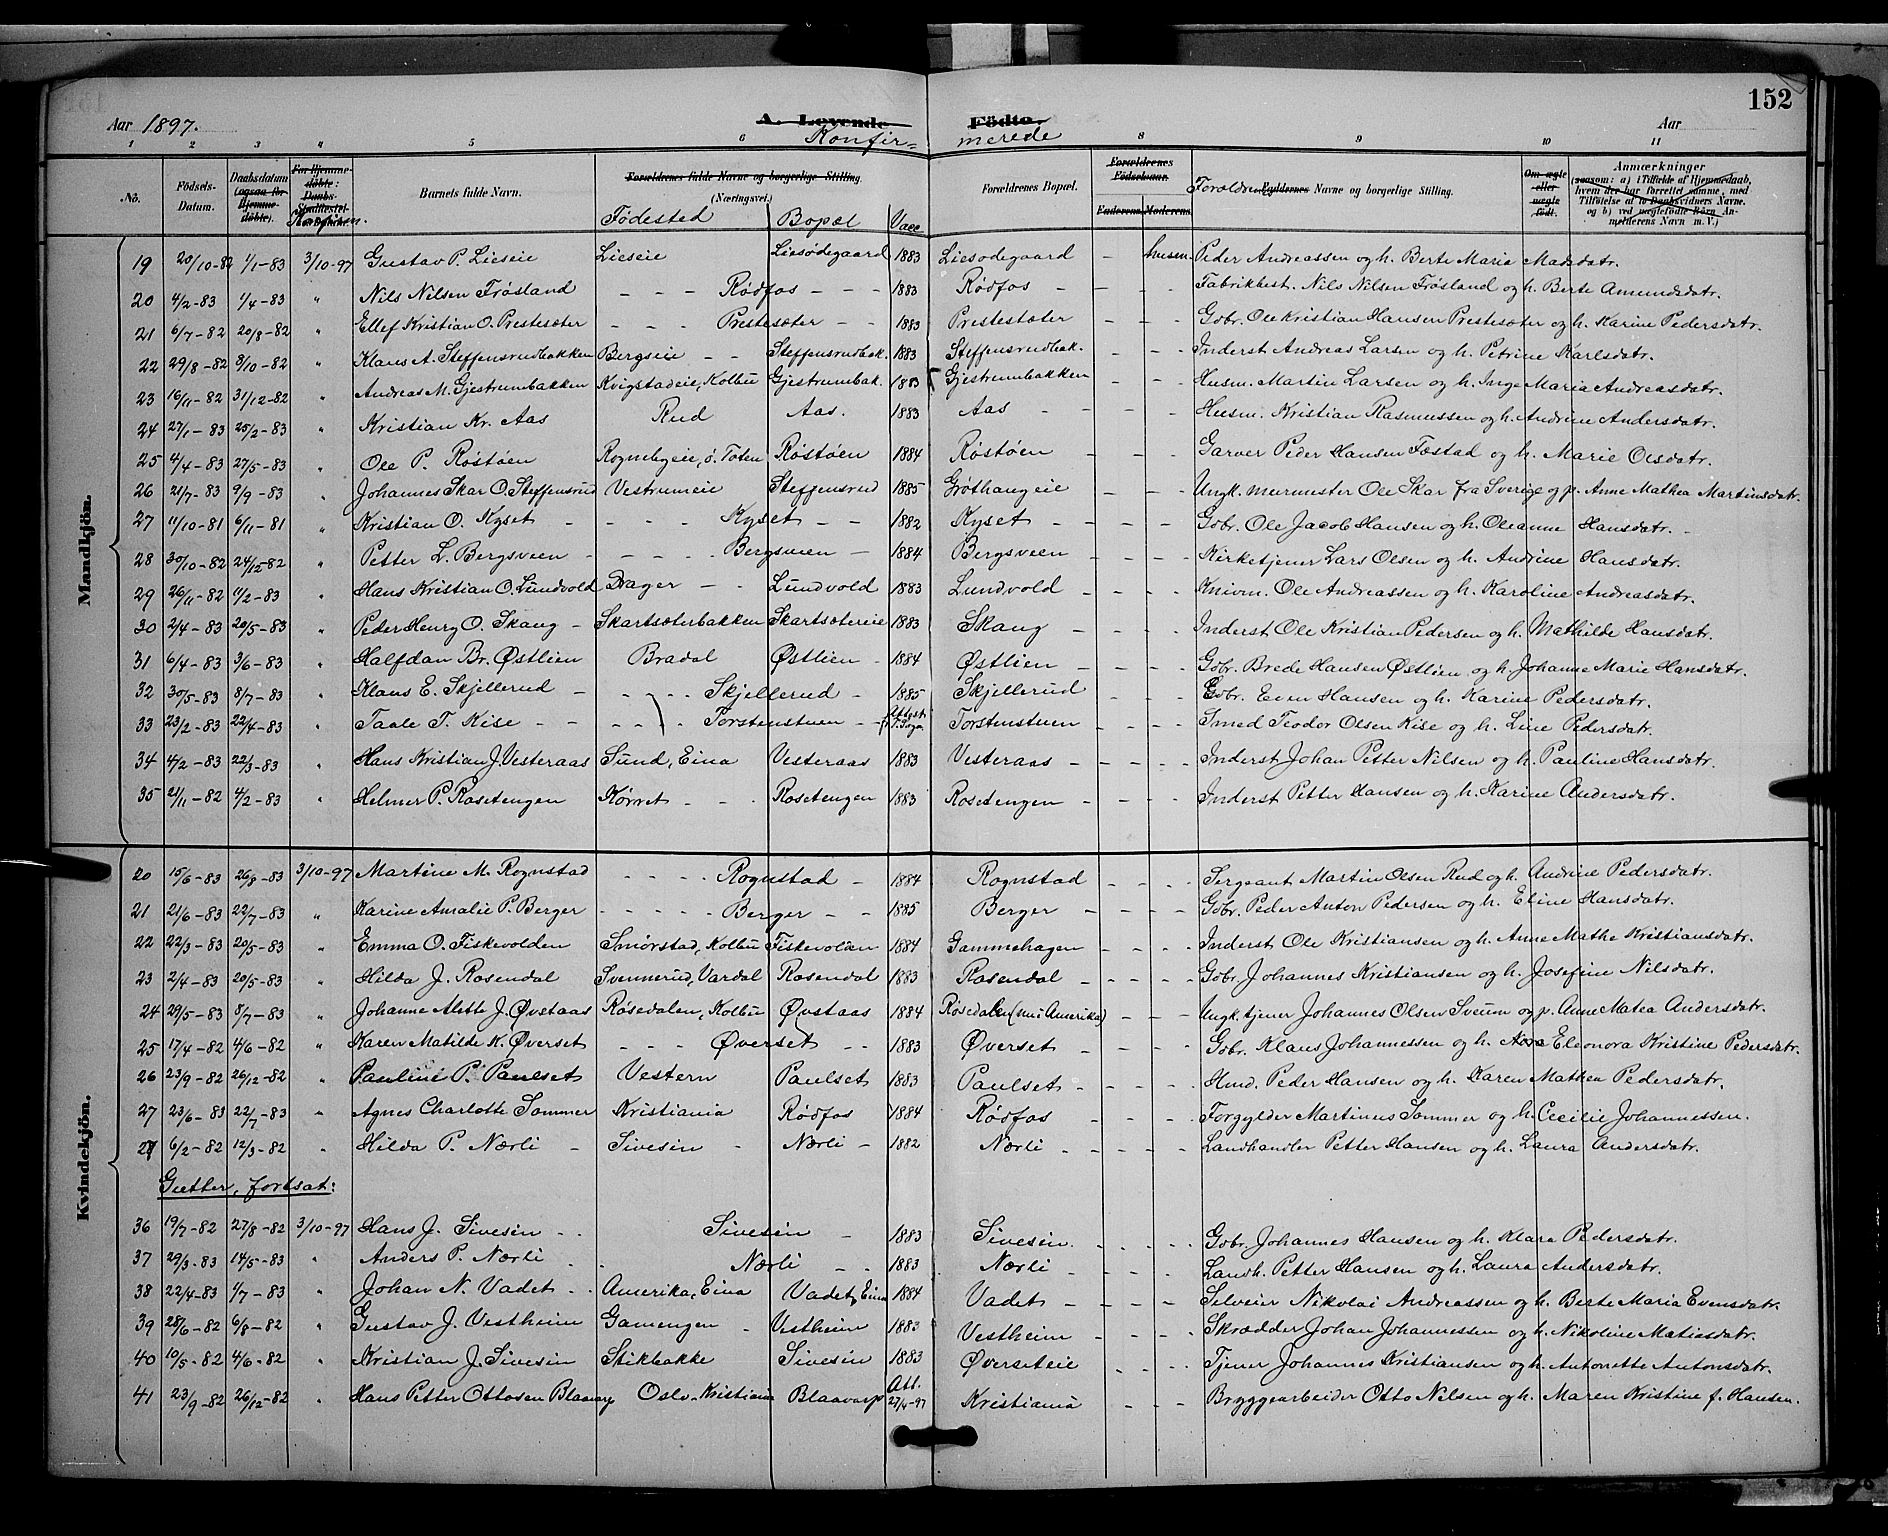 152
Aar 1897. A. Levende Födte. Aar
Konfir= merede
1 2 3 4 5 6 8 9 10 11
No. Födsels-Datum. Daabsdatum (ogsaa for Hjemmedöbte). For Hjemmedöbte: Daabs- Konfirm. Barnets fulde Navn. Forældrenes fulde Navne og borgerlige Stilling. (Næringsvei.) Födested Bopæl Vacc Forældrenes Bopæl. Forældrenes Födselsaar. Faderens Moderens Forældrenes Navne og borgerlige Stilling. Om ægte eller uægte födt. Anmærkninger (saasom: a) i Tilfælde af Hjemmedaab, hvem der har forrettet samme, med Tilföielse af to Daabsvidners Navne, og b) ved uægtefödte Börn Anmelderens Navn m. V.)
Mandkjön.
19 20/10-82 1/1-83 3/10-97 Gustav P. Lieseie Lieseie Liesødegaard 1883 Liesødegaard - husm. Peder Andreassen og h. Berte Maria Madsdatr.
20 4/2-83 1/4-83 " Nils Nilsen Frøsland - - - Rødfos - - - 1883 Rødfos - - - - Fabrikbest. Nils Nilsen Frøsland og h. Berte Amundsdatr.
21 6/7-82 20/8-82 " Ellef Kristian O. Prestesæter - - - Prestesæter - - 1883 Prestesæter - - - Gbr. Ole Kristian Hansen Prestesæter og h. Karine Pedersdatr.
22 29/8-82 3/10-82 " Klaus A. Steffensrudbakken Bergseie - - Steffensrudbak. 1883 Steffensrudbak. - - - Inderst Andreas Larsen og h. Petrine Karlsdatr.
23 16/11-82 31/12-82 " Andreas M. Gjestrumbakken Kvigstadeie, Kolbu Gjestrumbak. 1883 Gjestrumbakken - - - Husm. Martin Larsen og h. Inge Maria Andreasdatr.
24 27/1-83 25/2-83 " Kristian Kr. Aas Rud Aas. 1883 Aas - - - - Husm. Kristian Rasmussen og h. Andrine Andersdatr.
25 4/4-83 27/5-83 " Ole P. Røstøen Rognebyeie, ö. Toten Røstøen 1884 Røstøen - - - Garver Peder Hansen Fæstad og h. Marie Olsdatr.
26 21/7-83 9/9-83 " Johannes Skar O. Steffensrud Vestrumeie Steffensrud 1885 Grøthaugeie - - - Ungk. murmester Ole Skar fra Sverige og p. Anne Mathea Martinsdatr.
27 11/10-81 6/11-81 " Kristian O. Kyset - - - - Kyset - - 1882 Kyset - - - - Gbr. Ole Jacob Hansen og h. Oleanne Hansdatr.
28 30/10-82 24/12-82 " Petter L. Bergsveen - - - - Bergsveen - 1884 Bergsveen - - - - Kirketjener Lars Olsen og h. Andrine Hansdatr.
29 26/11-82 11/2-83 " Hans Kristian O. Lundvold Dager - - Lundvold 1883 Lundvold - - - - Knivm. Ole Andreassen og h. Karoline Andreasdatr.
30 2/4-83 20/5-83 " Peder Henry O. Skang - Skartsæterbakken Skartsætereie 1883 Skang - - - - Inderst Ole Kristian Pedersen og h. Mathilde Hansdatr.
31 6/4-83 3/6-83 " Halfdan Br. Østlien Bradal Østlien - 1884 Østlien - - - - Gbr. Brede Hansen Østlien og h. Johanne Marie Hansdatr.
32 30/5-83 8/7-83 " Klaus E. Skjellerud - - - - Skjellerud - 1885 Skjellerud - - - - Gbr. Even Hansen og h. Karine Pedersdatr.
33 23/2-83 22/4-83 " Taale T. Kise - - - - Torstenstuen - Attest Torstenstuen - - - - Smed Teodor Olsen Kise og h. Line Pedersdatr.
34 4/2-83 22/3-83 " Hans Kristian J. Vesteraas Sund, Eina Vesteraas 1883 Vesteraas - - - - Inderst Johan Petter Nilsen og h. Pauline Hansdatr.
35 21/11-82 4/2-83 " Helmer P. Rosetengen Kørret - - - Rosetengen 1883 Rosetengen - - - - Inderst Petter Hansen og h. Karine Andersdatr.
Kvindekjön.
20 15/6-83 26/8-83 3/10-97 Martine M. Rognstad - - - - Rognstad - 1884 Rognstad - - - - Sergeant Martin Olsen Rud og h. Andrine Pedersdatr.
21 21/6-83 22/7-83 " Karine Amalie P. Berger - - - - - Berger - - 1885 Berger - - - - Gbr. Peder Anton Pedersen og h. Eline Hansdatr.
22 22/3-83 20/5-83 " Emma O. Fiskevolden Smørstad, Kolbu Fiskevolden 1884 Gammehagen - - - - Inderst Ole Kristiansen og h. Anne Mathe Kristiansdatr.
23 2/4-83 20/5-83 " Hilda J. Rosendal Svennerud, Vardal Rosendal 1883 Rosendal - - - - Gbr. Johannes Kristiansen og h. Josefine Nilsdatr.
24 29/5-83 8/7-83 " Johanne Alette J. Øvstaas Røsedalen, Kolbu Øvstaas 1884 Røsedalen (nu i Amerika) - - - - Ungk. tjener Johannes Olsen Sveum og p. Anne Matea Andersdatr.
25 17/4-82 4/6-82 " Karen Matilde K. Øverset - - - Øverset - - 1883 Øverset - - - - Gbr. Klaus Johannessen og h. Eleonora Kristine Pedersdatr.
26 23/9-82 26/12-82 " Pauline P. Paulset Vestern Paulset 1883 Paulset - - - - Hmd. Peder Hansen og h. Karen Mathea Pedersdatr.
27 23/6-83 22/7-83 " Agnes Charlotte Sommer Kristiania Rødfos 1884 Rødfos - - - - Forgylder Martinus Sommer og h. Cecilie Johannessen.
6/2-82 12/3-82 " Hilda P. Nærli - Sivesin - Nærli - 1882 Nærli - - - - Landhandler Petter Hansen og h. Laura Andersdatr.
Gutter, fortsat:
36 19/7-82 27/8-82 3/10-97 Hans J. Sivesin - - Sivesin - 1883 Sivesin. - - - - Gbr. Johannes Hansen og h. Klara Pedersdatr.
37 29/3-83 14/5-83 " Anders P. Nærli - - Nærli - - 1883 Nærli - - - - Landh. Petter Hansen og h. Laura Andersdatr.
38 22/4-83 1/7-83 " Johan N. Vadet - - Amerika, Eina Vadet, Eina 1884 Vadet - - - - Nikolai Andreassen og h. Berte Maria Evensdatr.
39 28/6-82 6/8-82 " Gustav J. Vestheim Gamengen - Vestheim 1883 Vestheim - - - - Skrædder Johan Johannessen og h. Nikoline Matiasdatr.
40 10/5-82 4/6-82 " Kristian J. Sivesin Stikbakke Sivesin 1883 Øverseteie - - - Tjener Johannes Kristiansen og h. Antonette Antonsdatr.
41 23/9-82 26/12-82 " Hans Petter Ottosen Blaavarp Oslo-Kristiania Blaavarp Att. 27/4-97 Kristiania - - - Bryggearbeider Otto Nilsen og h. Maren Kristine f. Hansen.